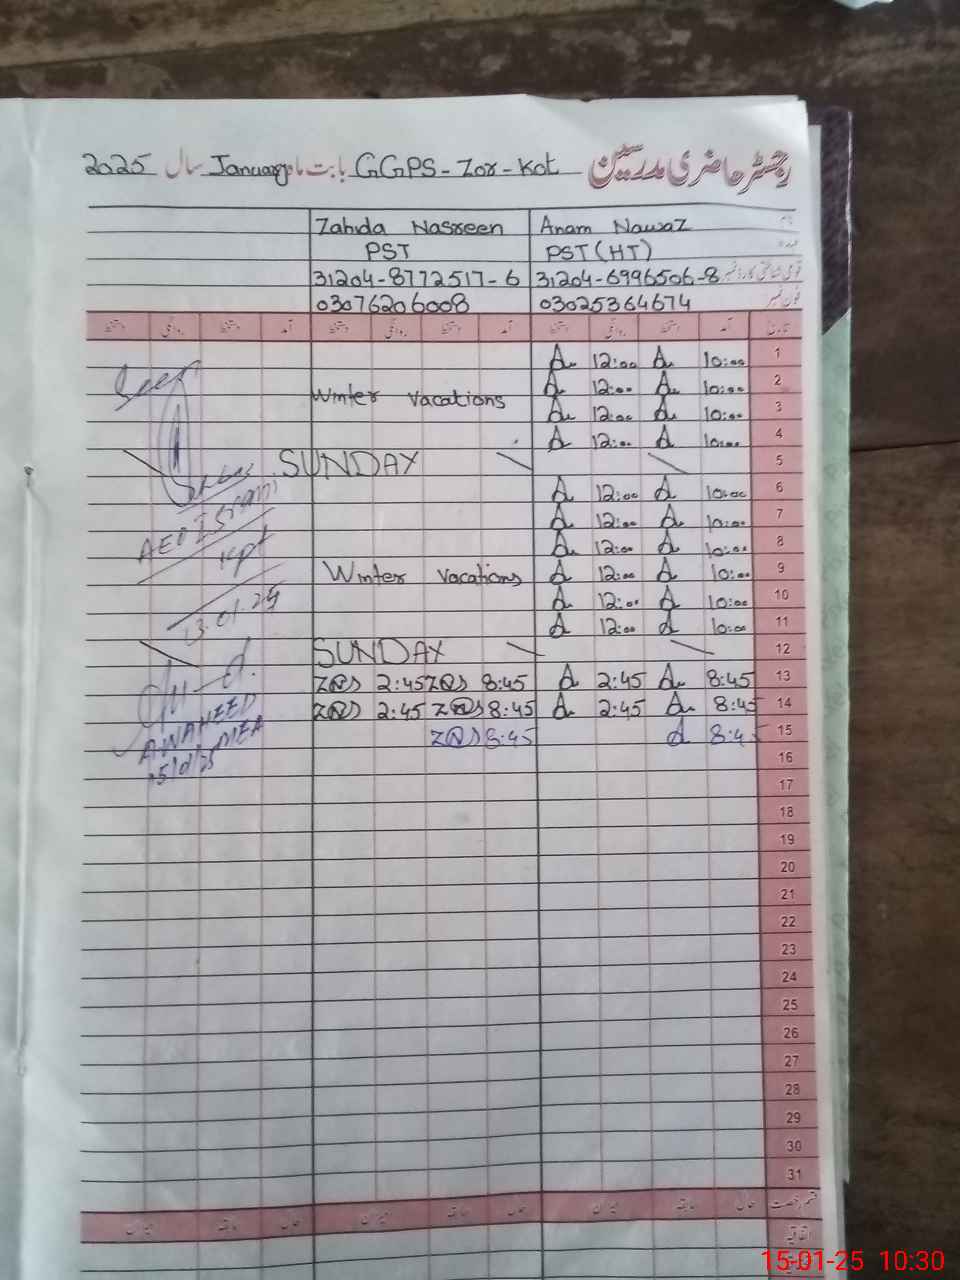 رجسٹر حاضری مدرسین GGPS - Zor - Kot بابت ماہ January سال 2025
نام Anam Nawaz Zahida Nasreen
عہدہ PST (HT) PST
قومی شناختی کارڈ نمبر 31204-6996506-8 31204-8772517-6
فون نمبر 03025364674 03076206008
تاریخ آمد دستخط روانگی دستخط آمد دستخط روانگی دستخط آمد دستخط روانگی دستخط
1 10:00 A 12:00 A
2 10:00 A 12:00 A
Winter vacations
3 10:00 A 12:00 A
4 10:00 A 12:00 A
5 SUNDAY
6 10:00 A 12:00 A
7 10:00 A 12:00 A
8 10:00 A 12:00 A
9 10:00 A 12:00 A Winter vacations
10 10:00 A 12:00 A
11 10:00 A 12:00 A
12 SUNDAY
13 8:45 A 2:45 A 8:45 2:45
14 8:45 A 2:45 A 8:45 2:45
15 8:45 A 8:45
16
17
18
19
20
21
22
23
24
25
26
27
28
29
30
31
Seen
AEO Isram
Kpt
13.01.25
A WAHEED
MEA
15/01/25
قسم رخصت حال سابقہ میزان حال سابقہ میزان حال سابقہ میزان
اتفاقیہ
15-01-25 10:30